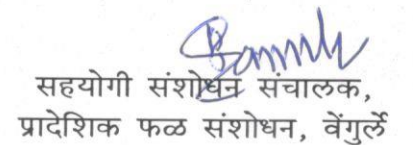 सहयोगी संशोधन संचालक,
प्रादेशिक फळ संशोधन, वेंगुर्ले